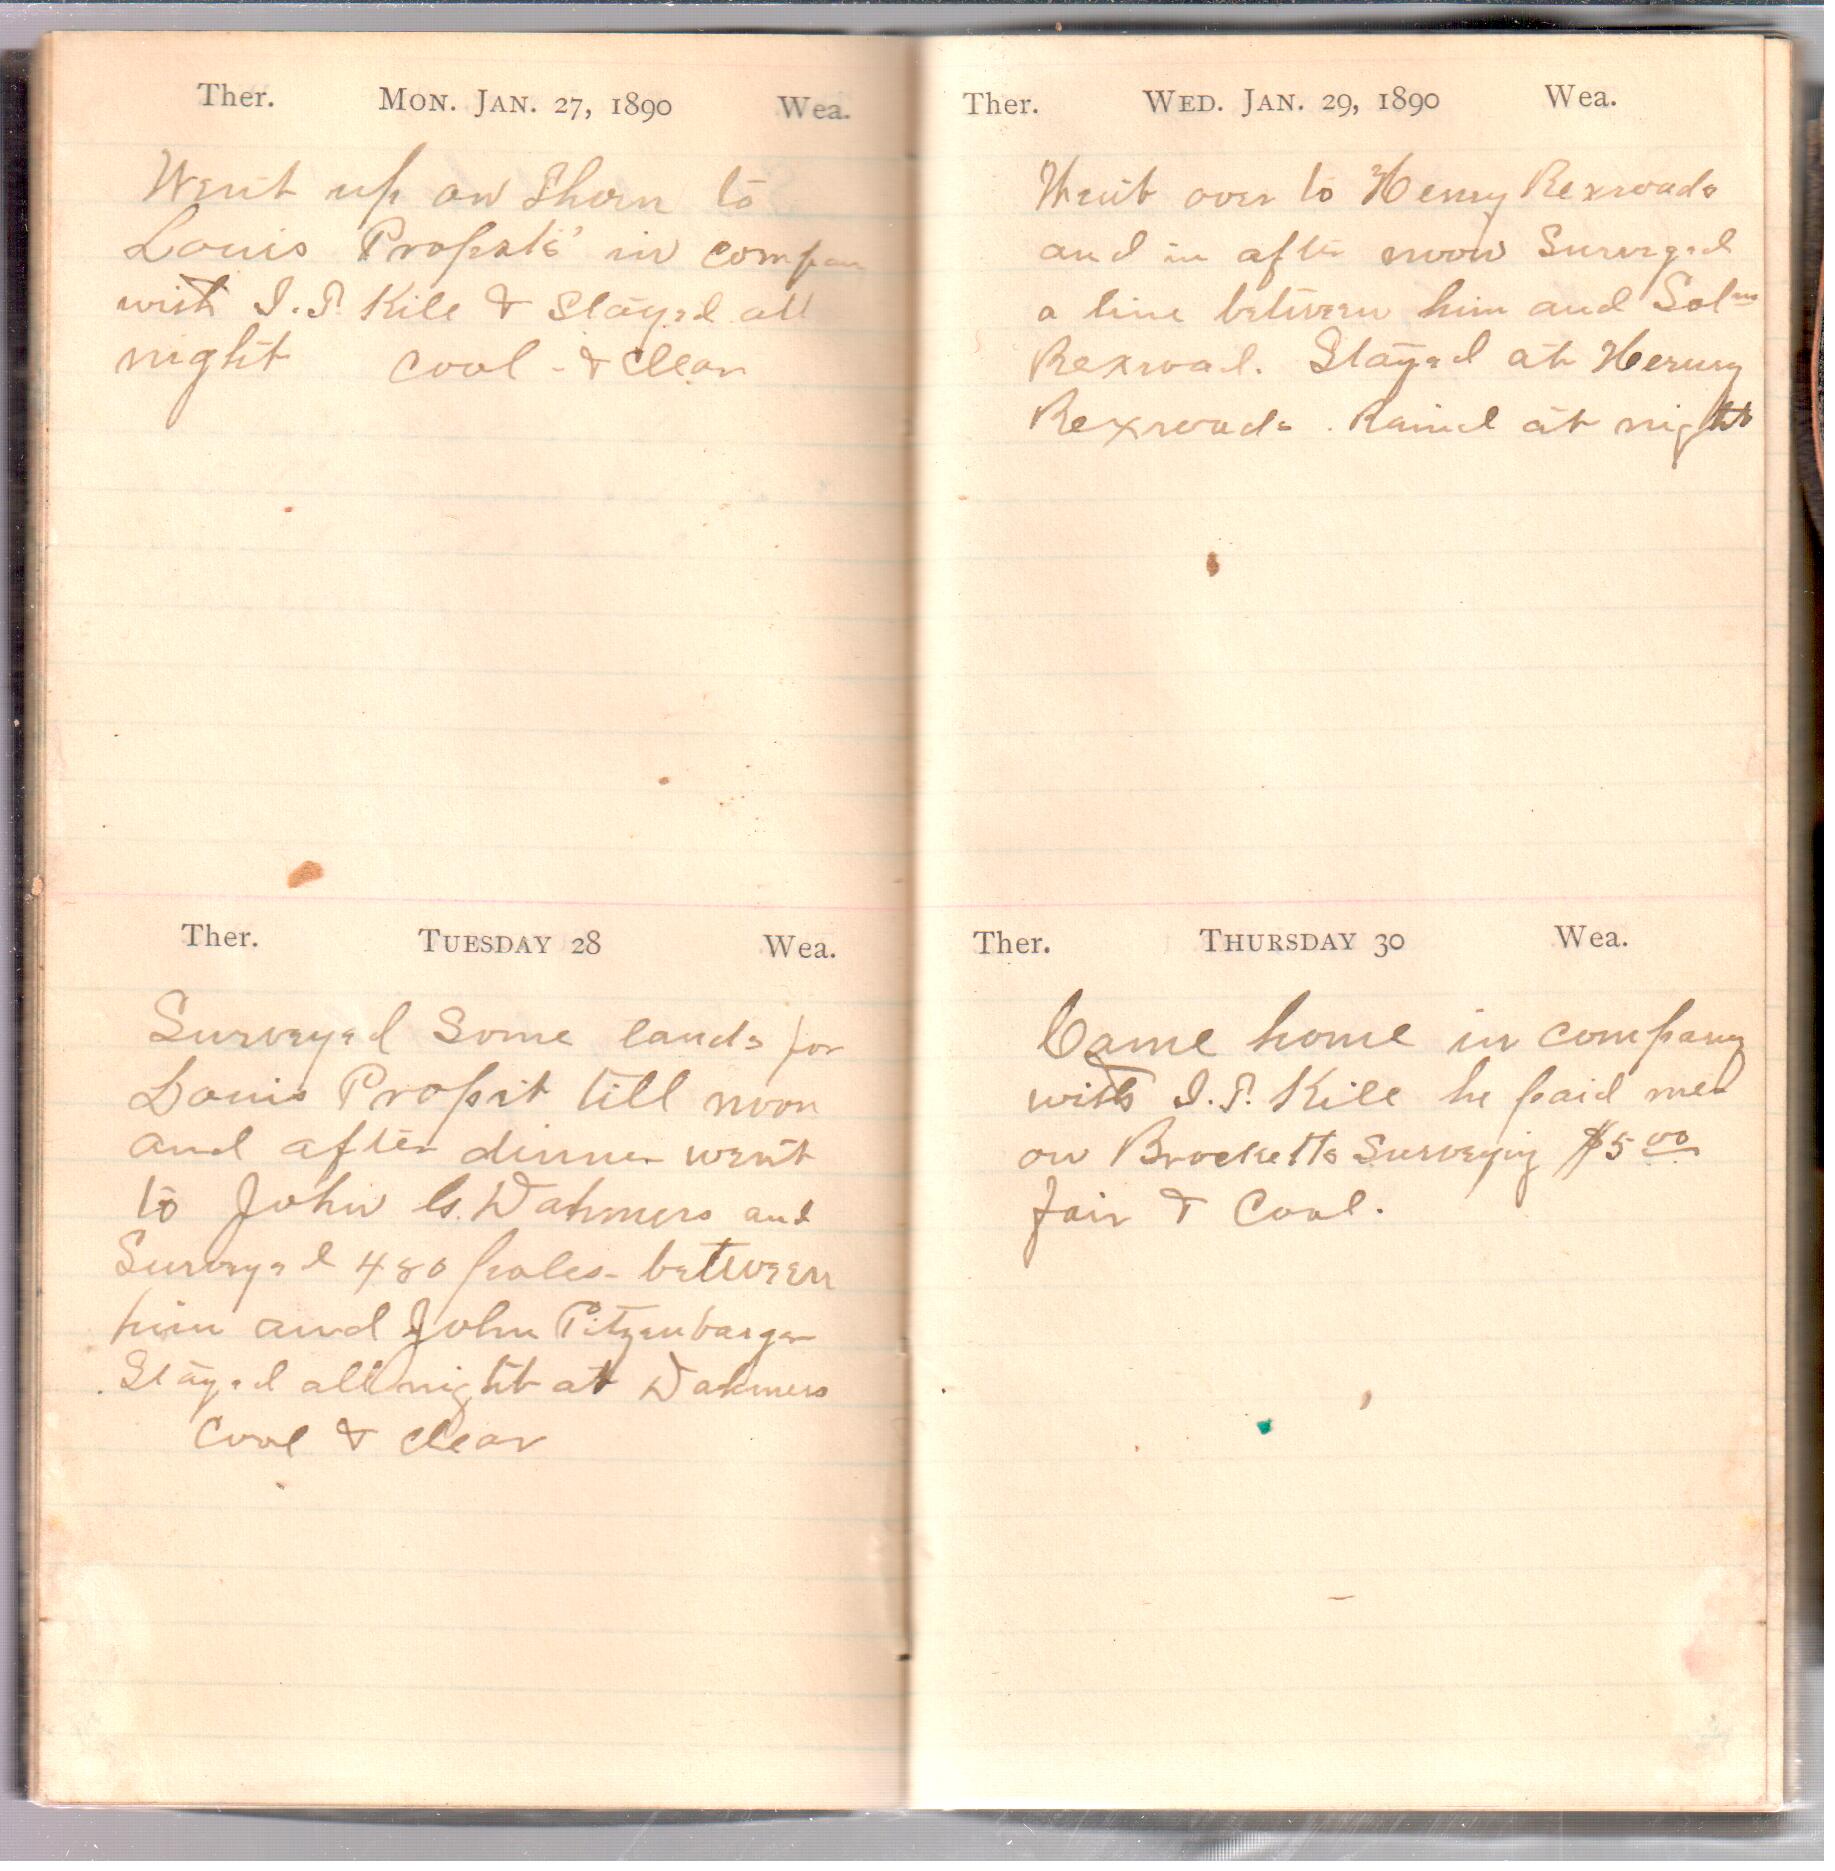 Ther. MON. JAN. 27, 1890 Wea.
Went up on Thorn to
Louis Propsts' in compan
with I. P. Kile & Stayed all
night cool - & clear
Ther. TUESDAY 28 Wea.
Surveyed Some lands for
Louis Propst till noon
and after dinner went
to John C. Dahmers and
Surveyed 480 poles - between
him and John Pitzenbarger
Stayed all night at Dahmers
Cool & clear
Ther. WED. JAN. 29, 1890 Wea.
Went over to Henry Rexroads
and in after noon Surveyed
a line between him and Solmn
Rexroad. Stayed at Henry
Rexroads. Raind at night
Ther. THURSDAY 30 Wea.
Came home in company
with I. P. Kile he paid me
on Brocketts Surveying $5 00
fair & Cool.